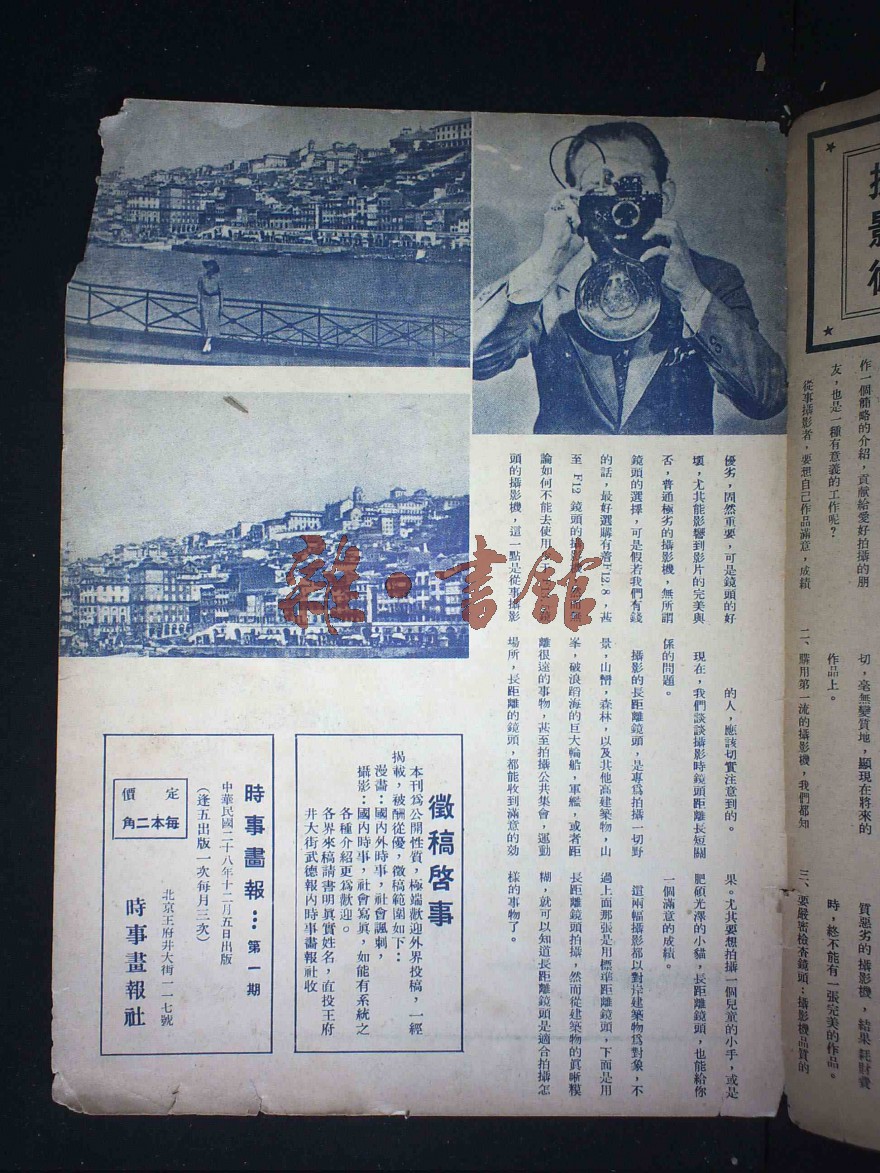 影
作一個簡略的介紹，貢獻給愛好拍攝的朋
友，也是一種有意義的工作呢？
從事攝影者，要想自己作品滿意，成績
切，毫無變質地，顯現在將來的
作品上。
二、購用第一流的攝影機，我們都知
質惡劣的攝影機，結果耗財費
時，終不能有一張完美的作品。
三、要嚴密檢查鏡頭：攝影機品質的
優劣，固然重要，可是鏡頭的好
壞，尤其能影響到影片的完美與
否，普通極劣的攝影機，無所謂
鏡頭的選擇，可是假若我們有錢
的話，最好選購有着F12.8，甚
至 F12 鏡頭的 然而無
論如何不能去使用
頭的攝影機，這一點是從事攝影
的人，應該切實注意到的。
現在，我們談談攝影時鏡頭距離長短關
係的問題。
攝影的長距離鏡頭，是專爲拍攝一切野
景，山嶺，森林，以及其他高建築物，山
峯，破浪蹈海的巨大輪船，軍艦，或者距
離很遠的事物，甚至拍攝公共集會，運動
場所，長距離的鏡頭，都能收到滿意的効
果。尤其要想拍攝一個兒童的小手，或是
肥碩光澤的小貓，長距離鏡頭，也能給你
一個滿意的成績。
這兩幅攝影都以對岸建築物爲對象，不
過上面那張是用標準距離鏡頭，下面是用
長距離鏡頭拍攝，然而從建築物的眞晰糢
糊，就可以知道長距離鏡頭是適合拍攝怎
樣的事物了。
徵稿啓事
本刊爲公開性質，極端歡迎外界投稿，一經
揭載，報酬從優，徵稿範圍如下：
漫畫：國內外時事，社會諷刺，
攝影：國內時事，社會寫眞，如能有系統之
各種介紹更爲歡迎。
各界來稿請書明眞實姓名，直投王府
井大街武德報內時事畫報社收
時事畫報：第一期
中華民國二十八年十二月五日出版
（逢五出版一次每月三次）
定價
每本二角
北京王府井大街一一七號
時事畫報社
雜·書館